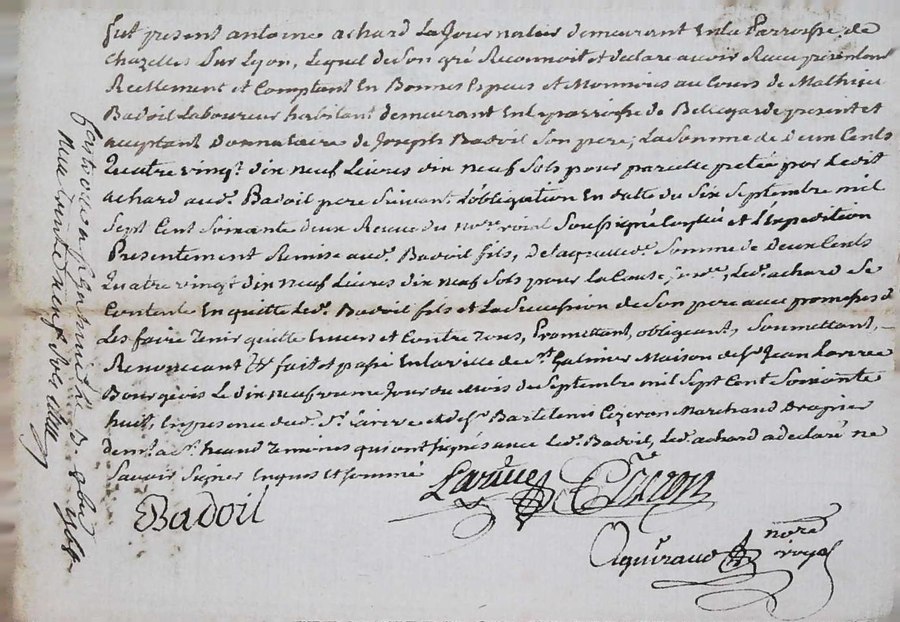 fut present antoine achard La Journalier demeurant En la Parroisse de
Chazelles Sur Lyon, Lequel de Son gré Reconnoit et declare avoir Receu présentement
Reellement et Comptant En Bonnes Especes et Monnoies au Cours de Mathieu
Badoil Laboureur habitant demeurant En la parroisse de Bellegarde present et
acceptant Donnataire de Joseph Badoil Son pere, La Somme de deux Cents
Quatre vingt dix neuf Livres dix neuf Sols pour pareille pretée par Ledit
achard aud. Badoil pere Suivant L'obligation En datte du Six Septembre mil
Sept Cent Soixante deux Receue du nore. roial Soussigné et L'Expedition
Presentement Remise aud. Badoil fils, De laquelle d. Somme de deux Cents
Quatre vingt dix neuf Livres dix neuf Sols pour La Cause Led. achard Se
Contente En quitte Led. Badoil fils et La Succession de Son pere avec promesses de
Les faire tenir quitte Envers et Contre tous, Promettant, obligeant, Soumettant,
Renonceant &c fait et passé En la ville de St. Galmier Maison de Sr. Jean Larive
Bourgeois Le dix neufvieme Jour du Mois de Septembre mil Sept Cent Soixante
huit, En presence dud. Sr. Larive et de Sr. Bartelemi Cizeron Marchand Drapier
temoins qui ont Signés avec Led. Badoil, Led. achard a declaré ne
Savoir Signer Enquis et Sommé
Badoil
Larive
Cizeron
nore
royal
neuf sols